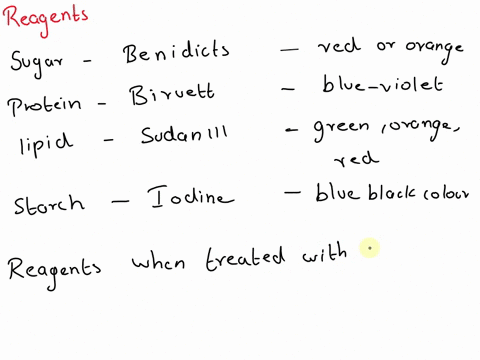 Reagents
Sugar - Benidicts - red or orange
Protein - Biruett - blue-violet
lipid - Sudan III - green, orange,
red
Starch - Iodine - blue black colour
Reagents when treated with